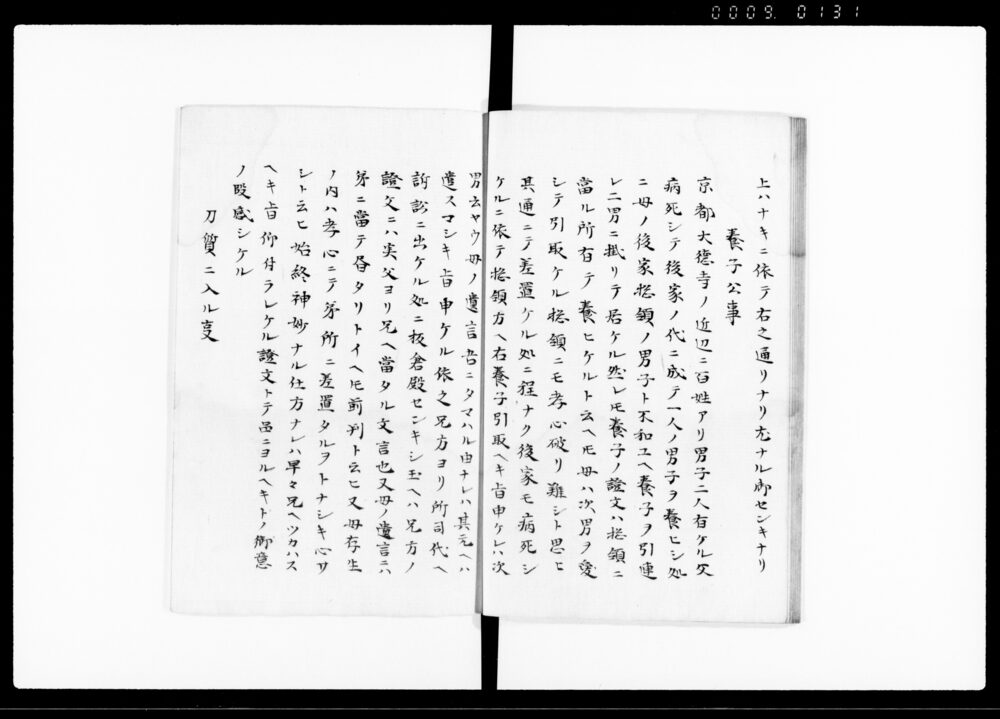 0009. 0131
上ハナキニ依テ右之通リナリ尤ナル御センキナリ
養子公事
京都大徳寺ノ近辺ニ百姓アリ男子二人有ケル父
病死シテ後家ノ代ニ成テ一人ノ男子ヲ養ヒシ処
ニ母ノ後家惣領ノ男子ト不和ユヘ養子ヲ引連
レ二男ニ掛リテ居ケル然レ𪜈養子ノ證文ハ惣領ニ
當ル所有テ養ヒケルト云ヘ𪜈母ハ次男ヲ愛
シテ引取ケル惣領ニモ孝心破リ難シト思ヒ
其通ニテ差置ケル処ニ程ナク後家モ病死シ
ケルニ依テ惣領方ヘ右養子引取ヘキ旨申ケレハ次
男云ヤウ母ノ遺言吾ニタマハル由ナレハ其元ヘハ
遣スマシキ旨申ケル依之兄方ヨリ所司代ヘ
訴訟ニ出ケル処ニ板倉殿センキシ玉ヘハ兄方ノ
證文ニハ実父ヨリ兄ヘ當タル文言也又母ノ遺言ニハ
弟ニ當テ昏タリトイヘ𪜈前判ト云ヒ又母存生
ノ内ハ孝心ニテ弟所ニ差置タルヲトナシキ心サ
シト云ヒ始終神妙ナル仕方ナレハ早々兄ヘツカハス
ヘキ旨仰付ラレケル證文トテ品ニヨルヘキトノ御意
ノ段感シケル
刀質ニ入ル叓